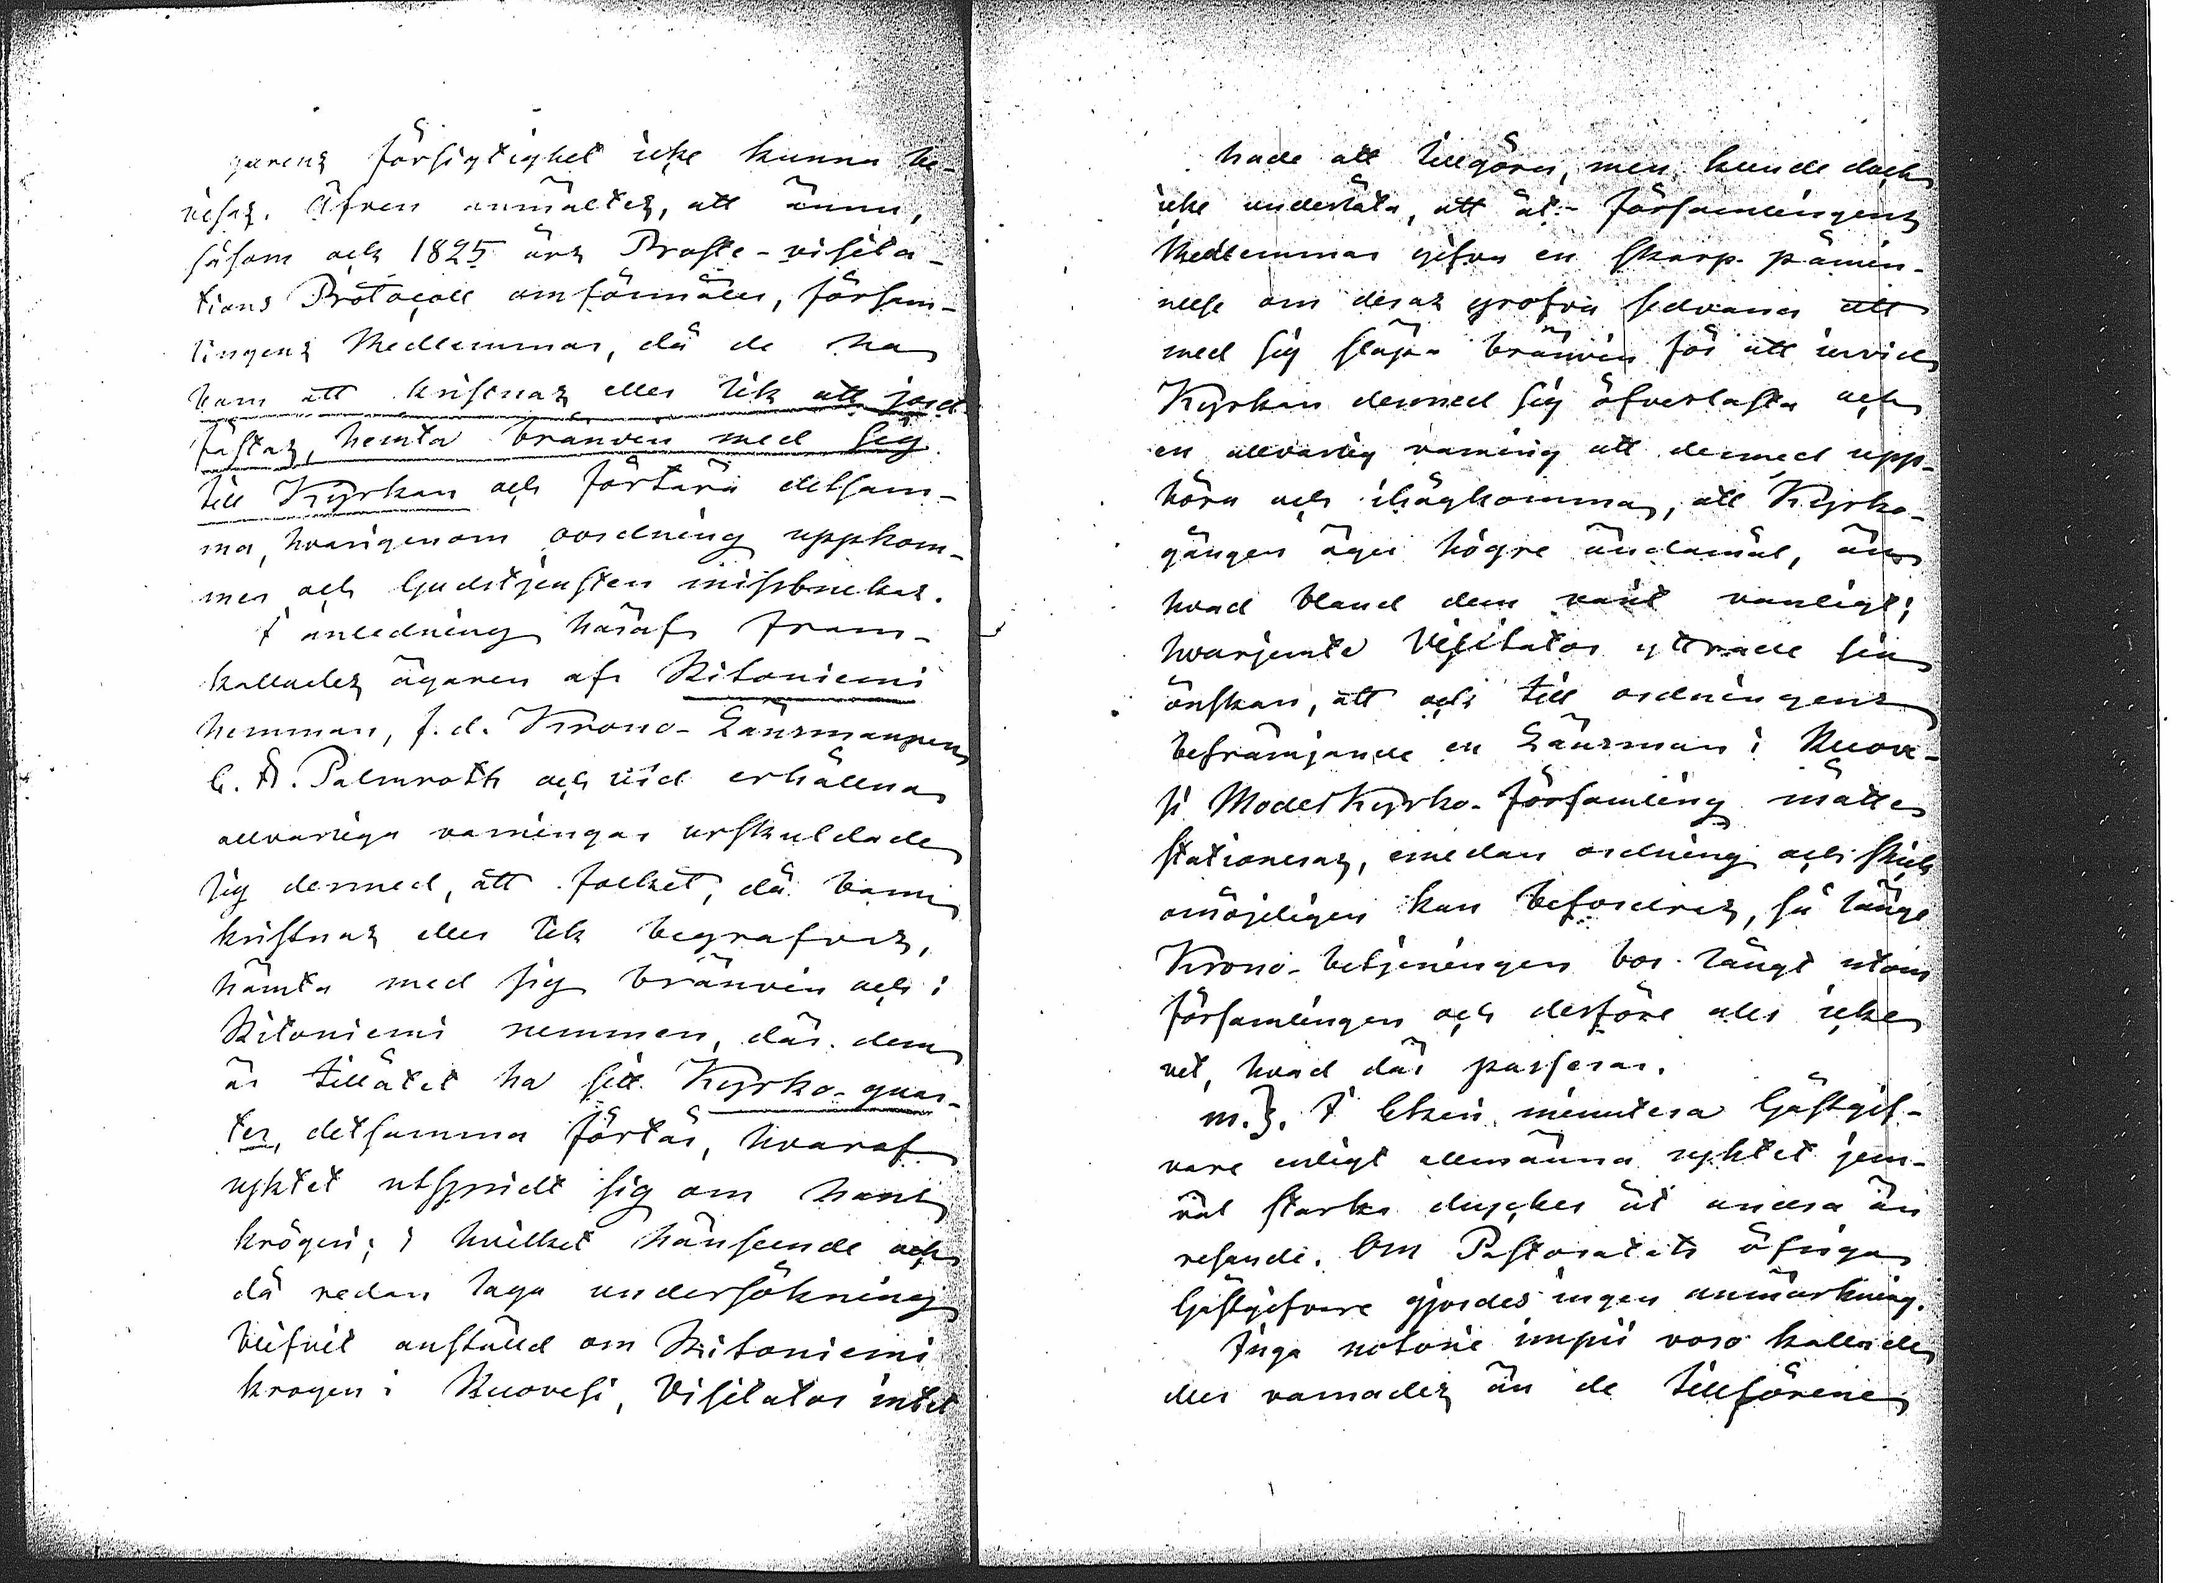 garens försigtighet icke kunna be-
visas. Äfven anmältes, att ännu,
såsom och 1825 års Proste-visita-
tions Protocoll omförmäler, försam-
lingens Medlemmar, då de ha
barn att kristnas eller lik att jord-
fästas, hemta bränvin med sig
till Kyrkan och förtära detsam-
ma, hvarigenom oordning uppkom-
mer och Gudstjensten missbrukas.
I anledning häraf fram-
kallades ägaren af Ritoniemi
hemman, f.d. Krono-Länsmannen
C. A. Palmroth och vid erhållna
allvarliga varningar urskuldade
sig dermed, att folket, då barn
kristnas eller lik begrafves,
hämta med sig bränvin och i
Ritoniemi hemman, där dem
är tillåtet ha sitt Kyrko-quar-
ter, detsamma förtär, hvaraf
ryktet utspridt sig om hans
krögeri; i hvilket hänseende och
då redan laga undersökning
blifvit anstäld om Ritoniemi
krogen i Ruovesi, Visitator intet
hade att tillgöra, men kunde dock
icke underlåta, att åt Församlingens
Medlemmar gifva en skarp påmin-
nelse om deras grofva sedvana att
med sig släpa bränvin för att invid
Kyrkan dermed sig öfverlasta och
en allvarlig varning att dermed upp-
höra och ihågkomma, att Kyrko-
gången äger högre ändamål, än
hvad bland dem varit vanligt;
hvarjemte Visitator yttrade sin
önskan, att och till ordningens
befrämjande en Länsman i Ruove-
si Moderkyrko-församling måtte
stationeras, emedan ordning och skick
omöjeligen kan befordras, så länge
Krono-betjeningen bor långt utom
församlingen och derföre alls icke
vet, hvad där passerar.
m.). I minutera Gästgif-
vare enligt allmänna ryktet jem-
väl starka drycker åt andra än
resande. Om Pastoratets öfriga
Gästgifvare gjordes ingen anmärkning.
Inga notorie impii voro kallade
eller varnades än de tillförene